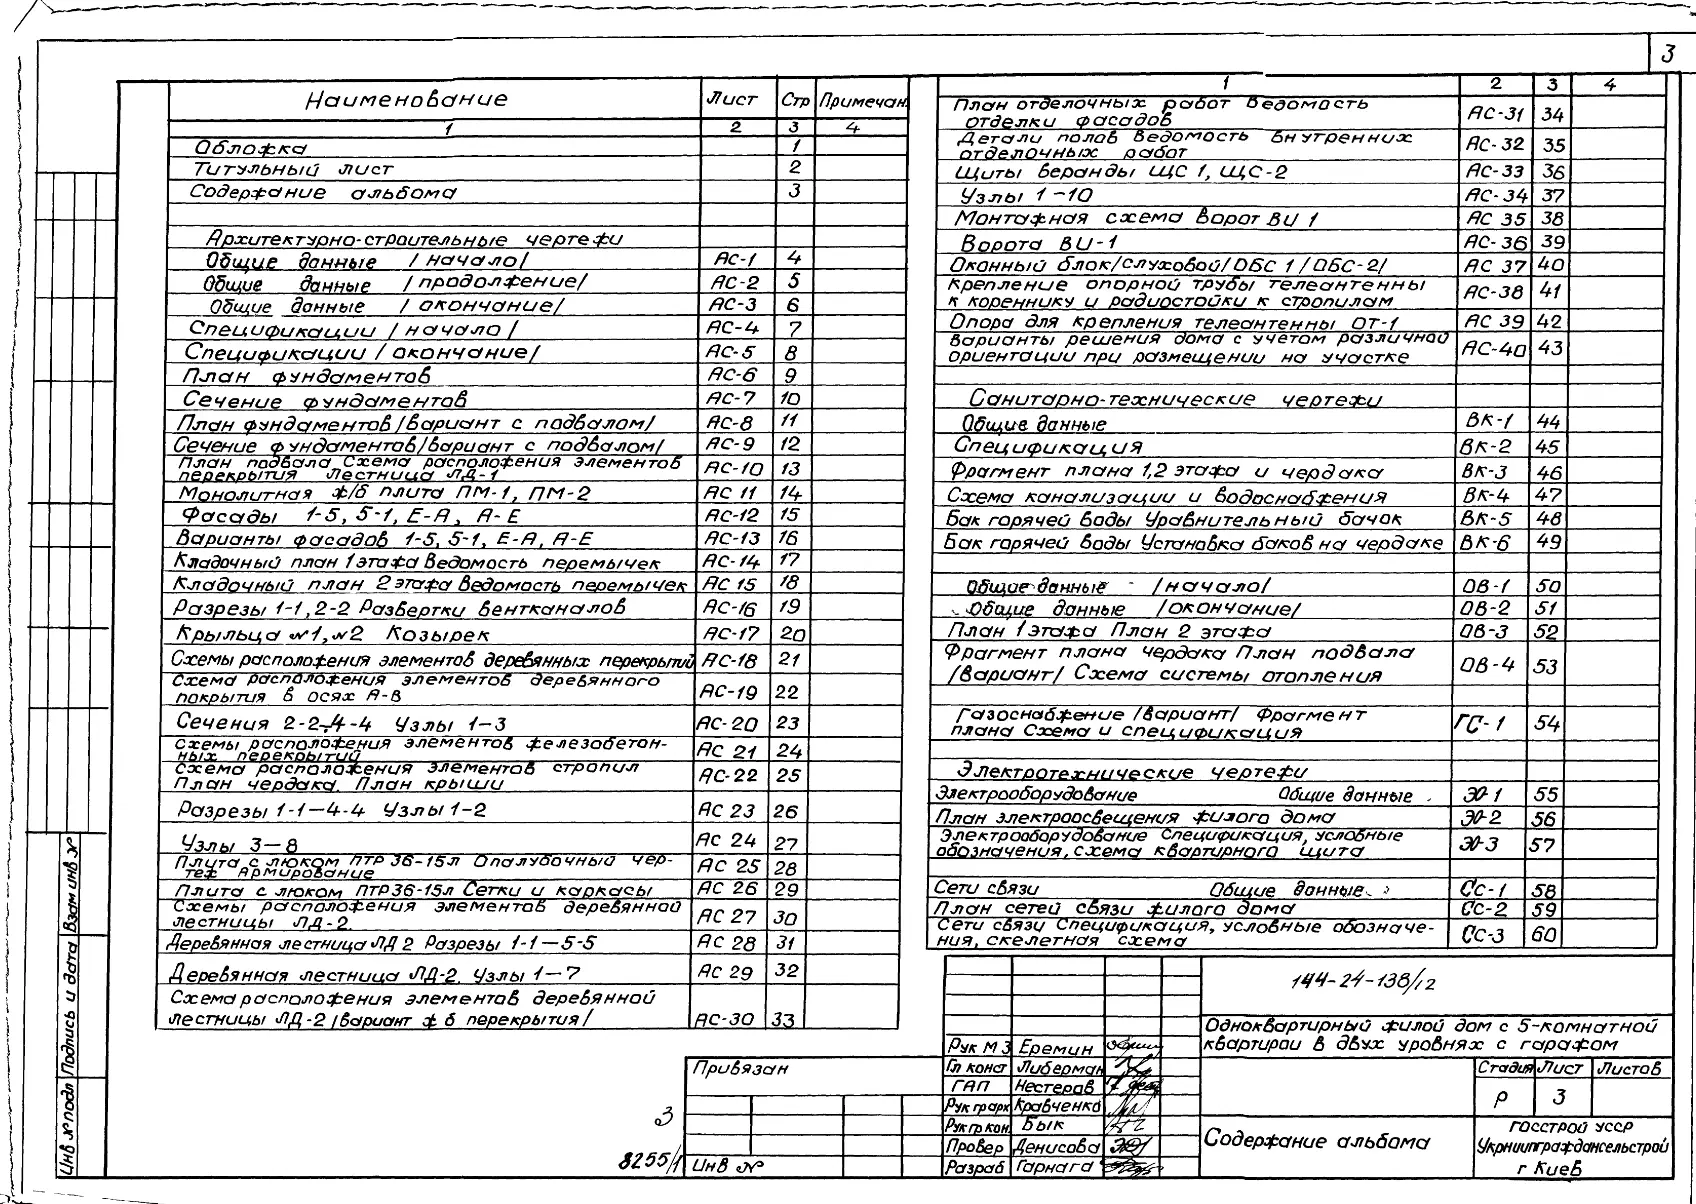 3
Наименование Лист Стр Примечан.
1 2 3 4
Обложка 1
Титульный лист 2
Содержание альбома 3
Архитектурно-строительные чертежи
Общие данные /начало/ АС-1 4
Общие данные /продолжение/ АС-2 5
Общие данные /окончание/ АС-3 6
Спецификации /начало/ АС-4 7
Спецификации /окончание/ АС-5 8
План фундаментов АС-6 9
Сечение фундаментов АС-7 10
План фундаментов /вариант с подвалом/ АС-8 11
Сечение фундаментов /вариант с подвалом/ АС-9 12
План подвала Схема расположения элементов
перекрытия Лестница ЛД-1 АС-10 13
Монолитная ж/б плита ПМ-1, ПМ-2 АС 11 14
Фасады 1-5, 5-1, Е-А, А-Е АС-12 15
Варианты фасадов 1-5, 5-1, Е-А, А-Е АС-13 16
Кладочный план 1 этажа Ведомость перемычек АС-14 17
Кладочный план 2 этажа Ведомость перемычек АС 15 18
Разрезы 1-1, 2-2 Развертки вентканалов АС-16 19
Крыльца №1, №2 Козырек АС-17 20
Схемы расположения элементов деревянных перекрытий АС-18 21
Схема расположения элементов деревянного
покрытия в осях А-В АС-19 22
Сечения 2-2÷4-4 Узлы 1-3 АС-20 23
Схемы расположения элементов железобетон-
ных перекрытий АС 21 24
Схема расположения элементов стропил
План чердака. План крыши АС-22 25
Разрезы 1-1—4-4 Узлы 1-2 АС 23 26
Узлы 3-8 АС 24 27
Плита с люком ПТР 36-15л Опалубочный чер-
теж Армирование АС 25 28
Плита с люком ПТР36-15л Сетки и каркасы АС 26 29
Схемы расположения элементов деревянной
лестницы ЛД-2. АС 27 30
Деревянная лестница ЛД 2 Разрезы 1-1—5-5 АС 28 31
Деревянная лестница ЛД-2. Узлы 1-7 АС 29 32
Схема расположения элементов деревянной
лестницы ЛД-2 /вариант ж б перекрытия/ АС-30 33
1 2 3 4
План отделочных работ Ведомость
отделки фасадов АС-31 34
Детали полов Ведомость внутренних
отделочных работ АС-32 35
Щиты веранды ЩС 1, ЩС-2 АС-33 36
Узлы 1-10 АС-34 37
Монтажная схема ворот ВИ 1 АС 35 38
Ворота ВИ-1 АС-36 39
Оконный блок /слуховой/ ОБС 1 /ОБС-2/ АС 37 40
Крепление опорной трубы телеантенны
к кореннику и радиостойки к стропилам АС-38 41
Опора для крепления телеантенны ОТ-1 АС 39 42
Варианты решения дома с учетом различной
ориентации при размещении на участке АС-40 43
Санитарно-технические чертежи
Общие данные ВК-1 44
Спецификация ВК-2 45
Фрагмент плана 1,2 этажа и чердака ВК-3 46
Схема канализации и водоснабжения ВК-4 47
Бак горячей воды Уравнительный бачок ВК-5 48
Бак горячей воды Установка баков на чердаке ВК-6 49
Общие данные /начало/ ОВ-1 50
Общие данные /окончание/ ОВ-2 51
План 1 этажа План 2 этажа ОВ-3 52
Фрагмент плана чердака План подвала
/вариант/ Схема системы отопления ОВ-4 53
Газоснабжение /вариант/ Фрагмент
плана Схема и спецификация ГС-1 54
Электротехнические чертежи
Электрооборудование Общие данные ЭО-1 55
План электроосвещения жилого дома ЭО-2 56
Электрооборудование Спецификация, условные
обозначения, схема квартирного щита ЭО-3 57
Сети связи Общие данные СС-1 58
План сетей связи жилого дома СС-2 59
Сети связи Спецификация, условные обозначе-
ния, скелетная схема СС-3 60
144-24-138/12
Одноквартирный жилой дом с 5-комнатной
квартирой в двух уровнях с гаражом
Рук М 3 Еремин
Гл конст Либерман
ГАП Нестеров
Рук гр арх Кравченко
Рук гр кон. Бык
Провер Денисова
Разраб Гарнага
Стадия Лист Листов
Р 3
Содержание альбома
Госстрой УССР
Укрниипграждансельстрой
г Киев
Привязан
Инв №
3
8255/1
Инв № подл Подпись и дата Взам инв №